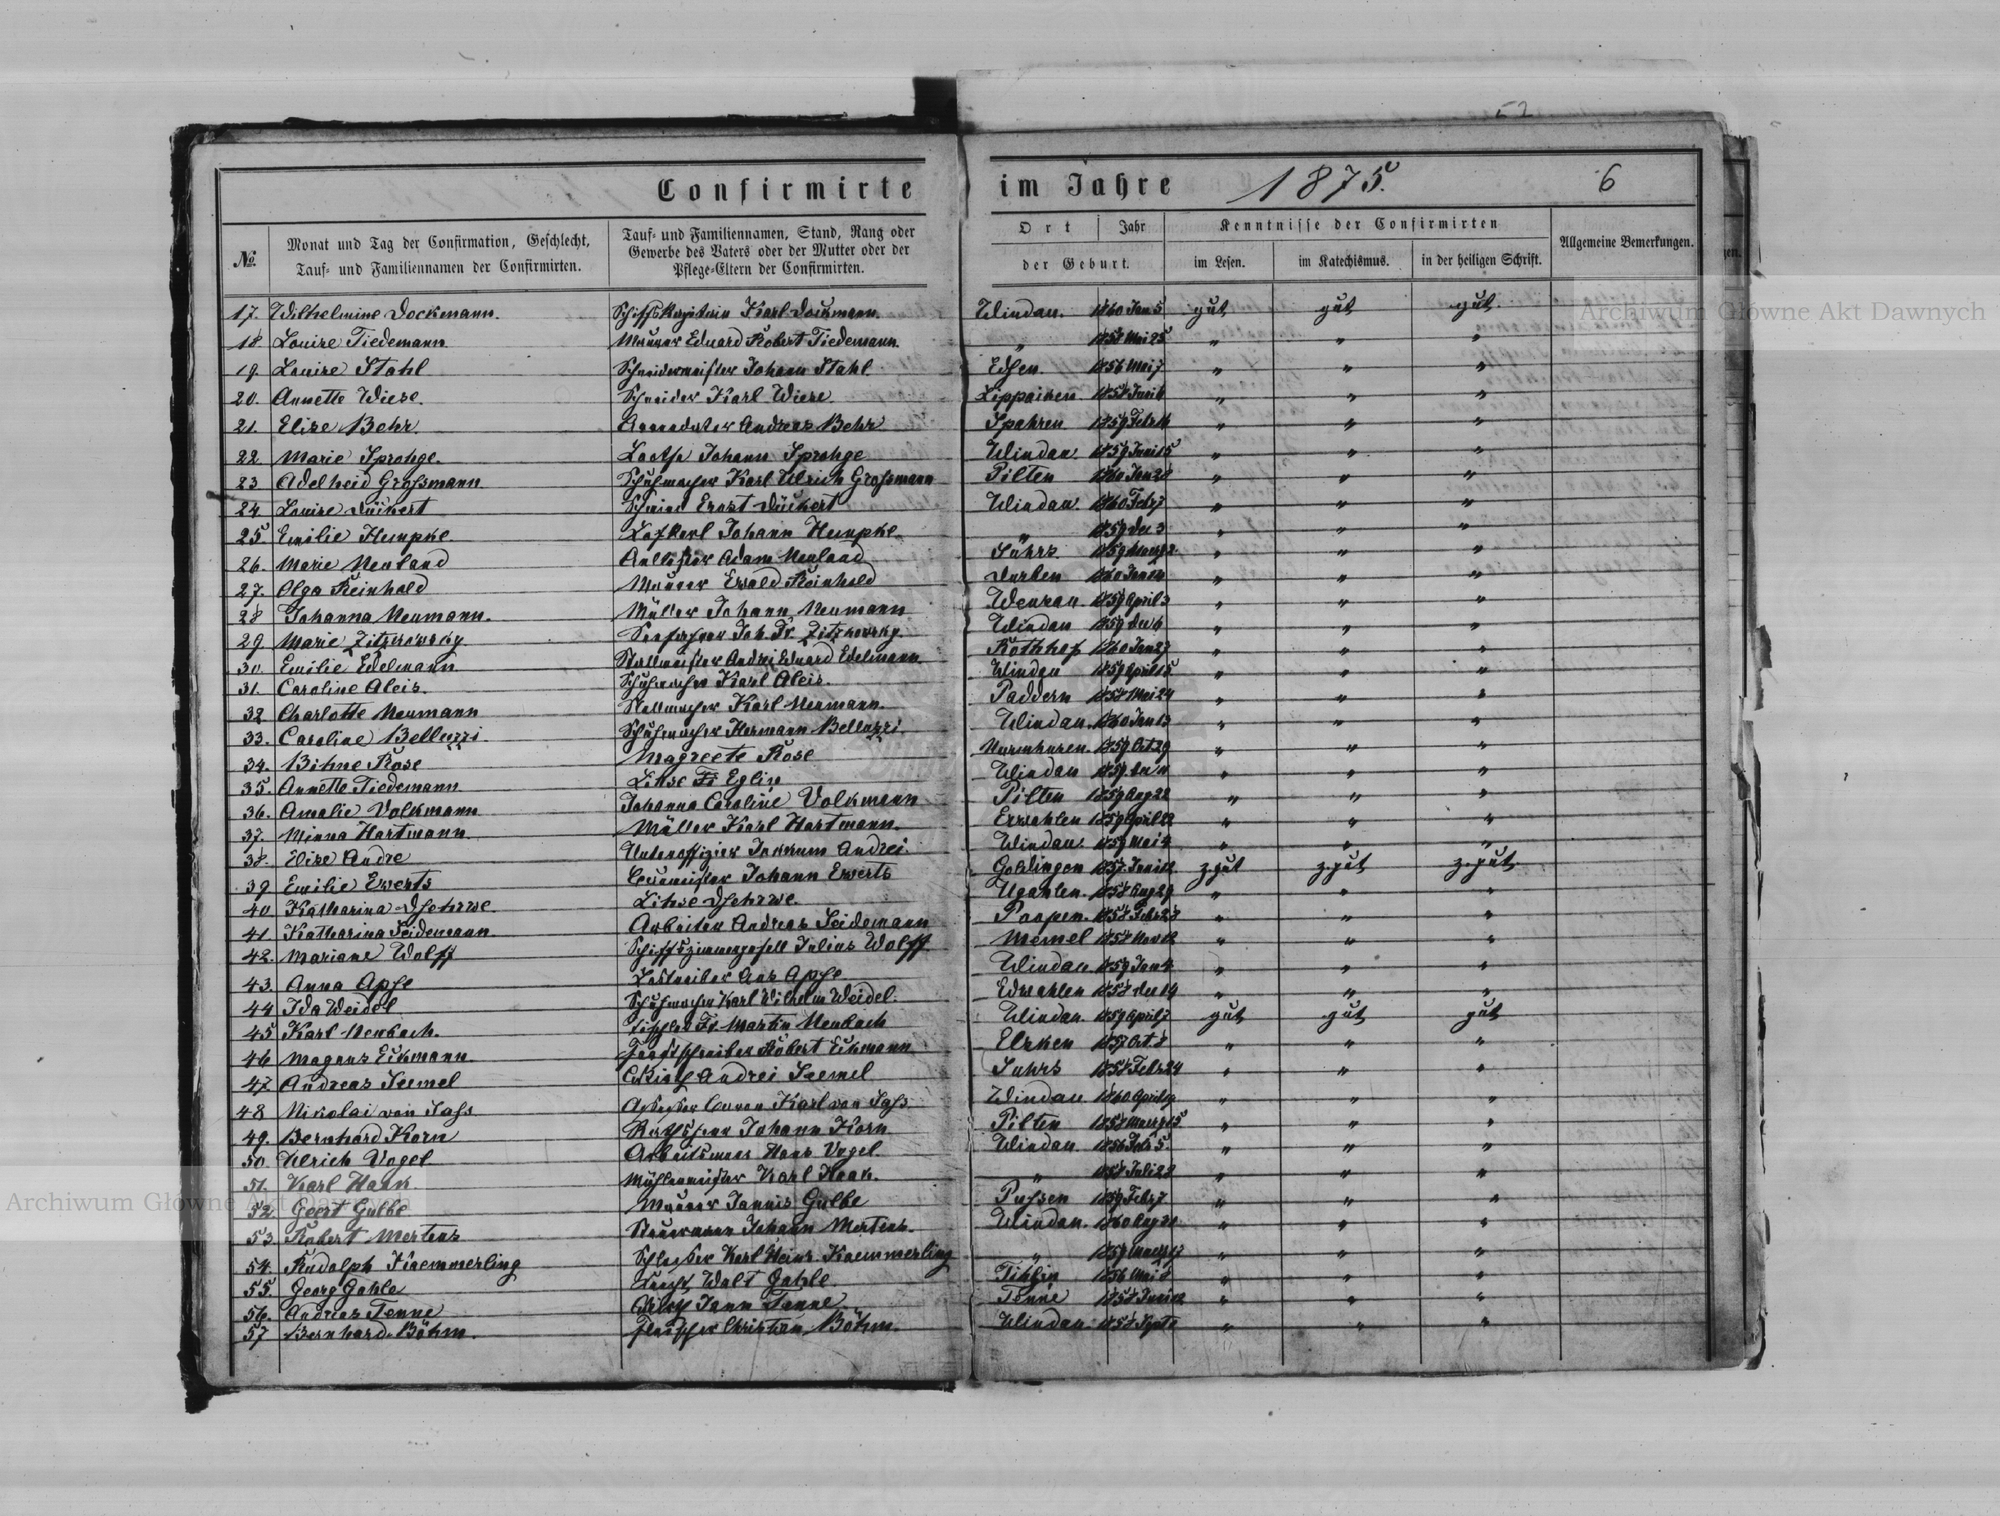 52
Confirmirte im Jahre 1875. 6
№ Monat und Tag der Confirmation, Geschlecht, Tauf- und Familiennamen der Confirmirten. Tauf- und Familiennamen, Stand, Rang oder Gewerbe des Vaters oder der Mutter oder der Pflege-Eltern der Confirmirten. Ort Jahr der Geburt. Kenntnisse der Confirmirten im Lesen. im Katechismus. in der heiligen Schrift. Allgemeine Bemerkungen.
17. Wilhelmine Dockmann. Schiffskapitain Karl Dockmann Windau. 1860 Jan 5 gut gut gut
18. Louise Tiedemann Maurer Eduard Robert Tiedemann. " 1858 Mai 25 " " "
19. Louise Stahl Schneidermeister Johann Stahl Edsen 1856 Mai 7 " " "
20. Annette Wiese. Schneider Karl Wiese Lippaiken 1858 Juni " " "
21. Elise Behr. Andreas Behr Spahren 1859 Febr " " "
22. Marie Sprohge. Lootse Johann Sprohge Windau 1859 Juni 15 " " "
23 Adelheid Grossmann Schuhmacher Karl Ulrich Grossmann Pilten 1860 Jan 28 " " "
24. Louise Dückert Ernst Dückert Windau 1860 Febr 7 " " "
25 Emilie Hempke. Johann Hempke. " 1859 Dec 3 " " "
26. Marie Neuland Adam Neuland 1859 " " "
27. Olga Reinhold Maurer Ewald Reinhold Durben 1860 Jan " " "
28 Johanna Neumann. Müller Johann Neumann 1859 April 3 " " "
29 Marie Zitzkowsky Joh. Fr. Zitzkowsky. Windau 1859 Dec 6 " " "
30. Emilie Edelmann Stallmeister Andrei Eduard Edelmann Rothhof 1860 Jan 27 " " "
31. Caroline Aleis. Schuhmacher Karl Aleis. Windau 1859 April 15 " " "
32 Charlotte Neumann Stellmacher Karl Neumann. Paddern 1858 Mai 24 " " "
33. Caroline Belluzzi. Schuhmacher Hermann Belluzzi Windau. 1860 Jan 13 " " "
34. Bihne Rose Magreete Rose Nurmhusen. 1859 Oct 29 " " "
35. Annette Tiedemann. Lihse Eglin Windau 1859 Dec " " "
36. Amalie Volkmann Johanna Caroline Volkmann Pilten 1859 Aug 22 " " "
37. Minna Hartmann Müller Karl Hartmann. Erwahlen 1859 April " " "
38. Elise Andre Unteroffizier Andrei. Windau. 1859 Mai " " "
39 Emilie Ewerts Johann Ewerts Goldingen 1857 Juni z. gut z. gut z. gut.
40. Katharina Dsehrwe. Lihse Dsehrwe. Ugahlen. 1858 Aug 29 " " "
41. Katharina Seidemann. Arbeiter Andreas Seidemann Paapen. 1858 Febr " " "
42. Mariane Wolff Schiffszimmergesell Julius Wolff Memel 1858 Nov " " "
43. Anna Apse Ans Apse Windau 1859 Jan 4 " " "
44 Ida Weidel Schuhmacher Karl Wilhelm Weidel. Edwahlen 1858 Dec 19 " " "
45 Karl Neubach. Tischler Fr. Martin Neubach Windau 1859 April 7 gut gut gut
46 Magnus Eckmann Forstschreiber Robert Eckmann Elzken 1857 Oct " " "
47. Andreas Seemel Andrei Seemel Suhrs 1858 Febr 24 " " "
48 Nikolai von Sass Assessor Baron Karl von Sass Windau 1860 April " " "
49. Bernhard Korn Rathsherr Johann Korn Pilten 1858 15 " " "
50. Ulrich Vogel Arbeitsmann Hans Vogel Windau 5. " " "
51. Karl Haak Mühlenmeister Karl Haak. " 1858 Juli 28 " " "
52. Geert Gulbe Maurer Jannis Gulbe Pussen 1859 Febr 7 " " "
53 Robert Mertens Steuermann Johann Mertens. Windau. 1860 Aug " " "
54. Rudolph Kaemmerling Schlosser Karl Heinr. Kaemmerling " 1859 " " "
55. Georg Gahle Knecht Walt Gahle 1856 Mai " " "
56. Andreas Tenne Jann Tenne Tenne 1858 Juni " " "
57 Bernhard Böhm. Fleischer Christian Böhm. Windau. 1858 Sept " " "
Archiwum Główne Akt Dawnych
Archiwum Główne Akt Dawnych